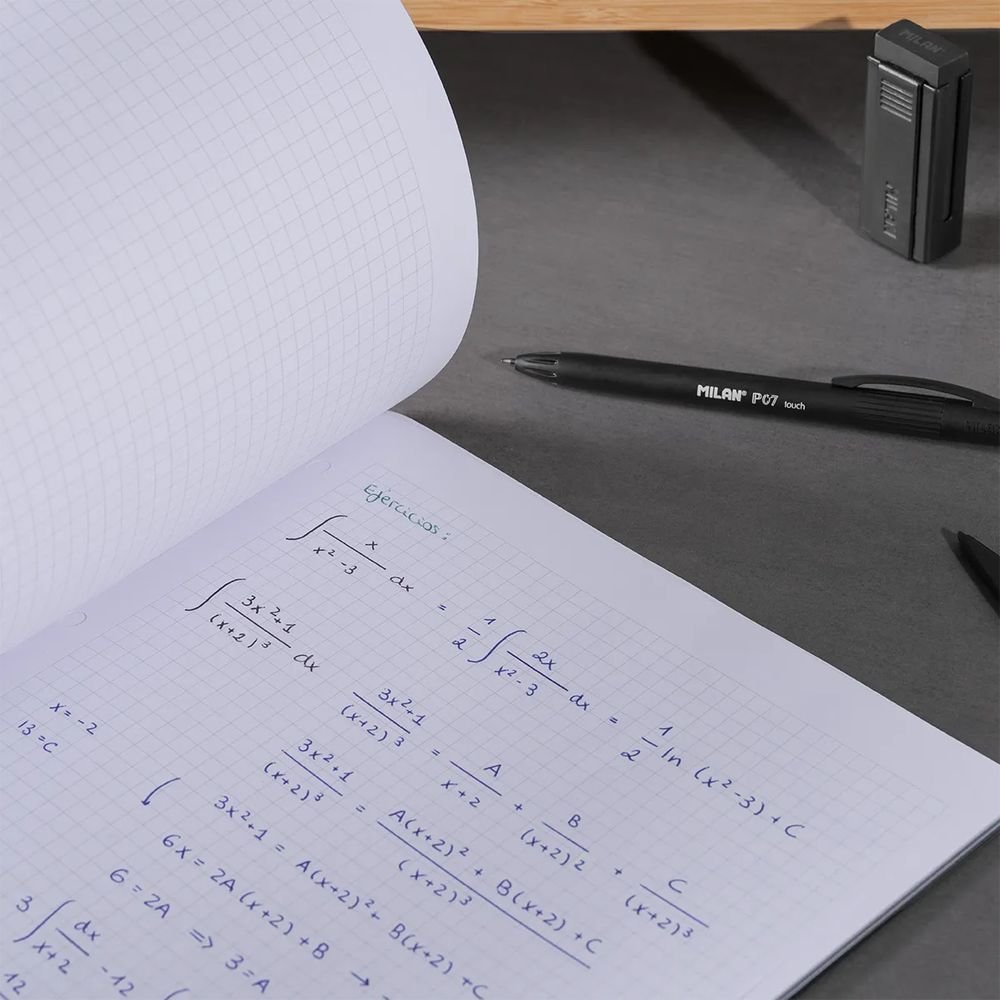 MILAN
MILAN
MILAN® P07 touch
Ejercicios:
∫ x/(x²-3) dx = 1/2 ∫ 2x/(x²-3) dx = 1/2 ln (x²-3) + C
∫ (3x²+1)/(x+2)³ dx
(3x²+1)/(x+2)³ = A/(x+2) + B/(x+2)² + C/(x+2)³
(3x²+1)/(x+2)³ = (A(x+2)² + B(x+2) + C)/(x+2)³
x = -2
13 = C
3x²+1 = A(x+2)² + B(x+2) + C
6x = 2A(x+2) + B →
6 = 2A => 3 = A
3 ∫ dx/(x+2) - 12 ∫
12